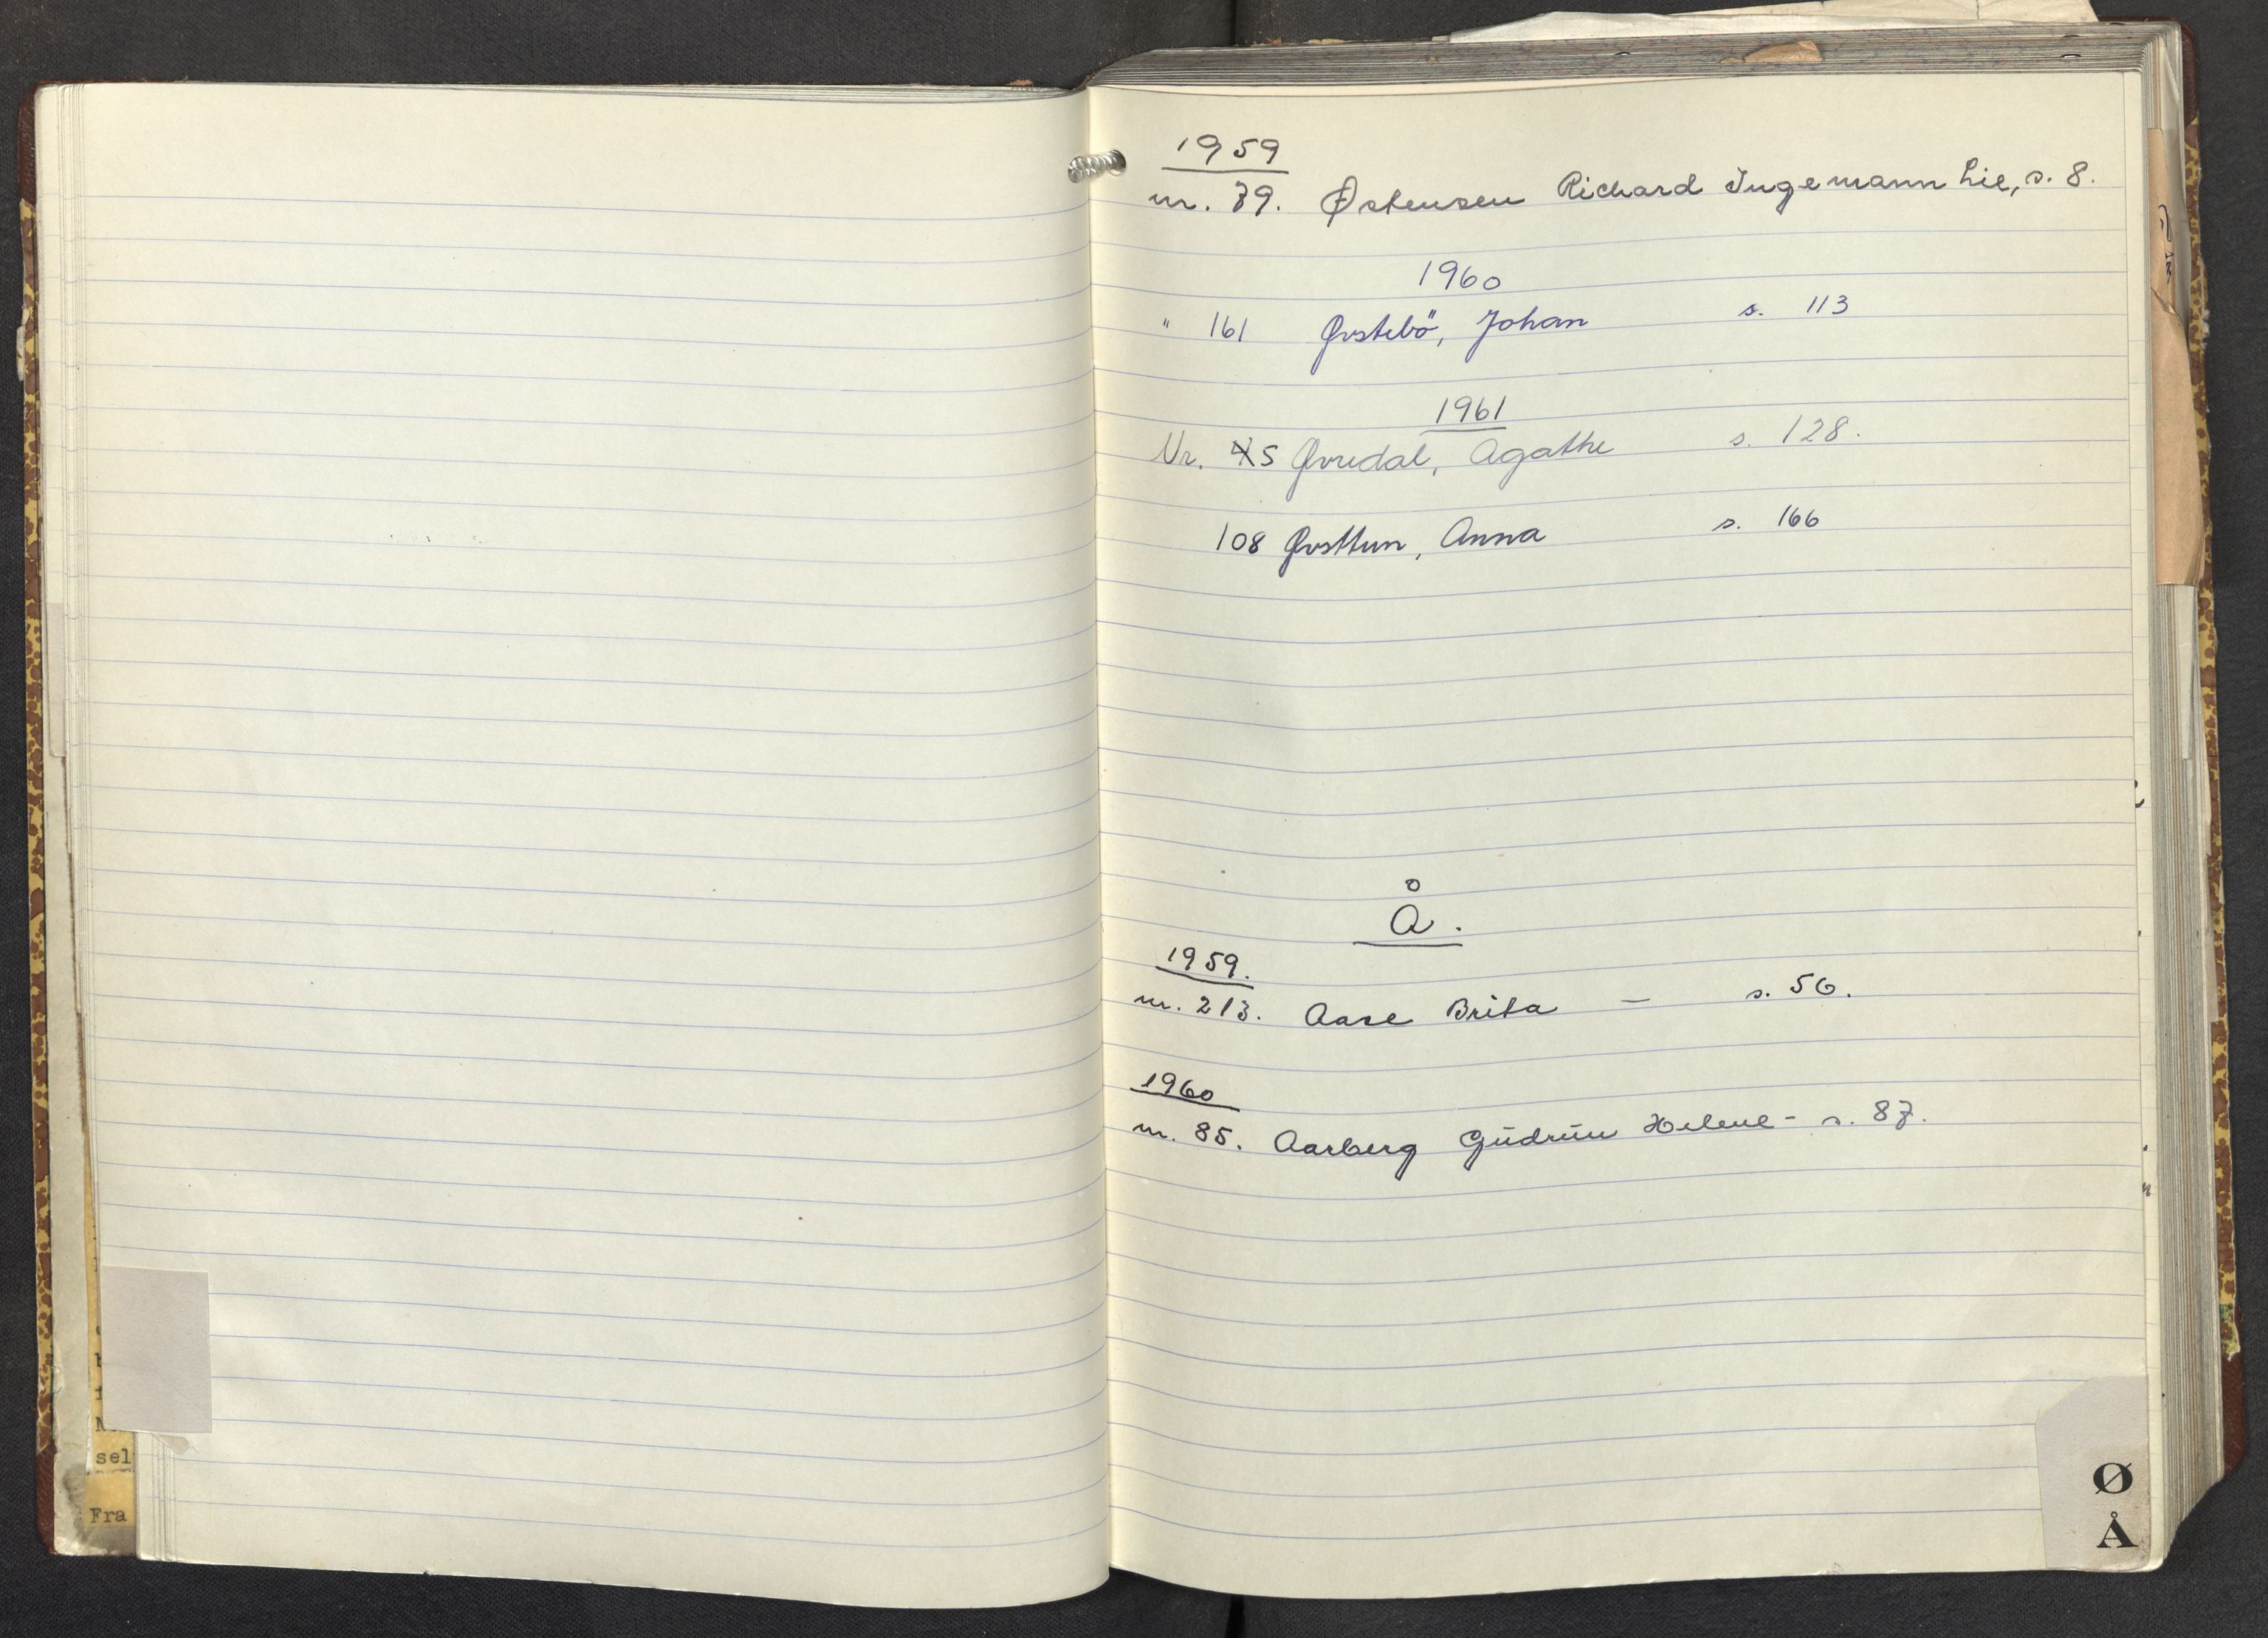 1959
nr. 79. Østensen Richard Ingemann Lie, s. 8.
1960
" 161 Øvstebö, Johan s. 113
1961
Nr. 5 Øvredal, Agathe s. 128.
108 Øvsttun, Anna s. 166
Å.
1959.
nr. 213. Aase Brita — s. 56.
1960
nr. 85. Aarberg Gudrun Helene - s. 87.
Ø
Å
sel
Fra